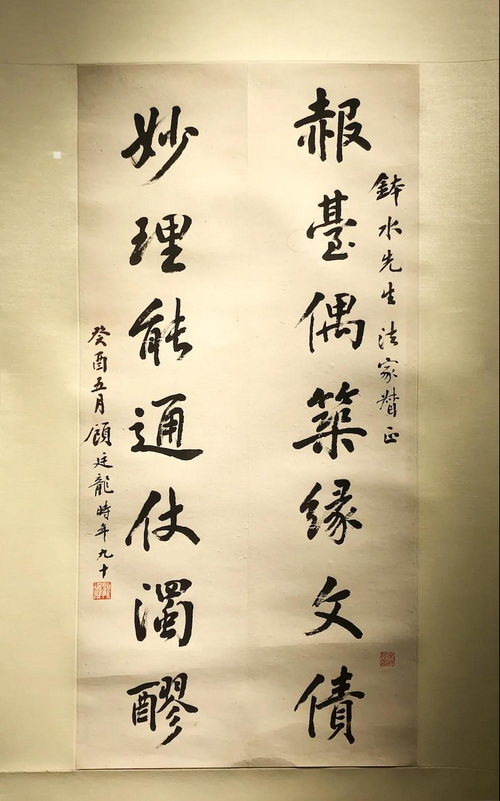 鉢水先生法家督正
赧臺偶築緣文債
妙理能通仗濁醪
癸酉五月顧廷龍時年九十